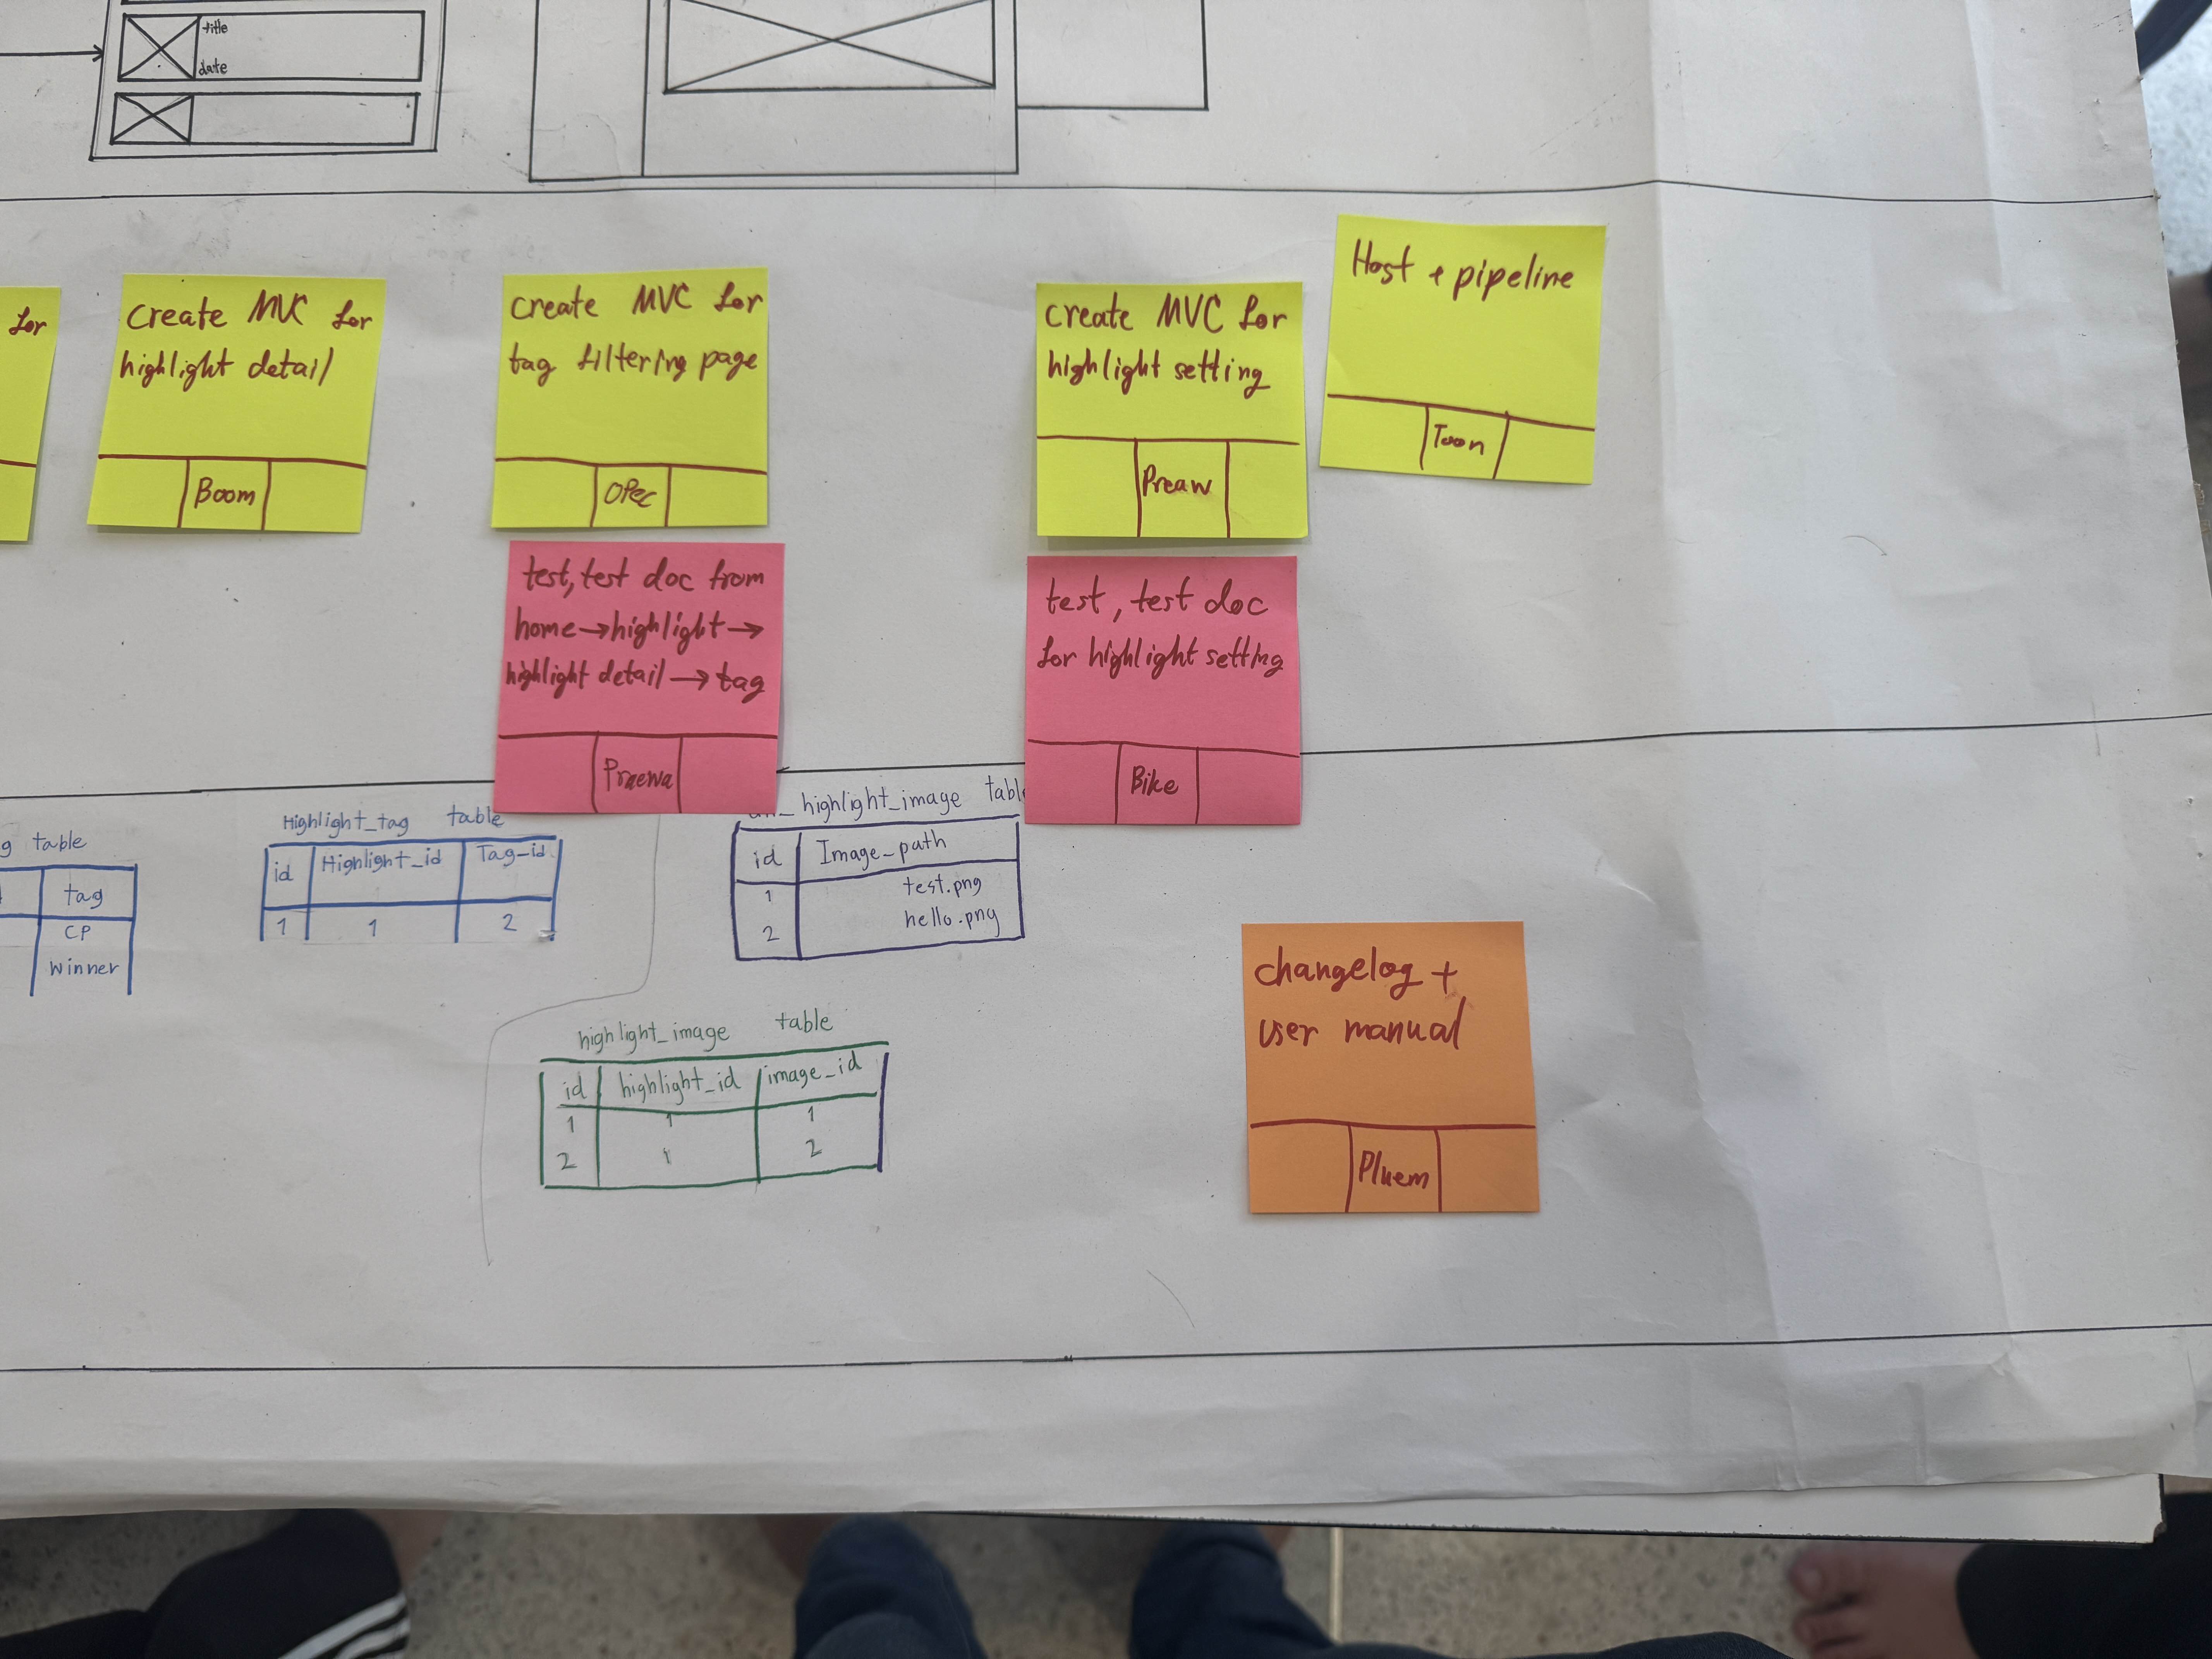 title
date
for
create MVC for
highlight detail
Boom
create MVC for
tag filtering page
OPec
create MVC for
highlight setting
Preaw
Host + pipeline
Toon
test, test doc from
home→highlight→
highlight detail→tag
Praewa
test, test doc
for highlight setting
Bike
g table
tag
CP
winner
Highlight_tag table
id Highlight_id Tag_id
1 1 2
_highlight_image table
id Image_path
1 test.png
2 hello.png
highlight_image table
id highlight_id image_id
1 1 1
2 1 2
changelog +
user manual
Pluem